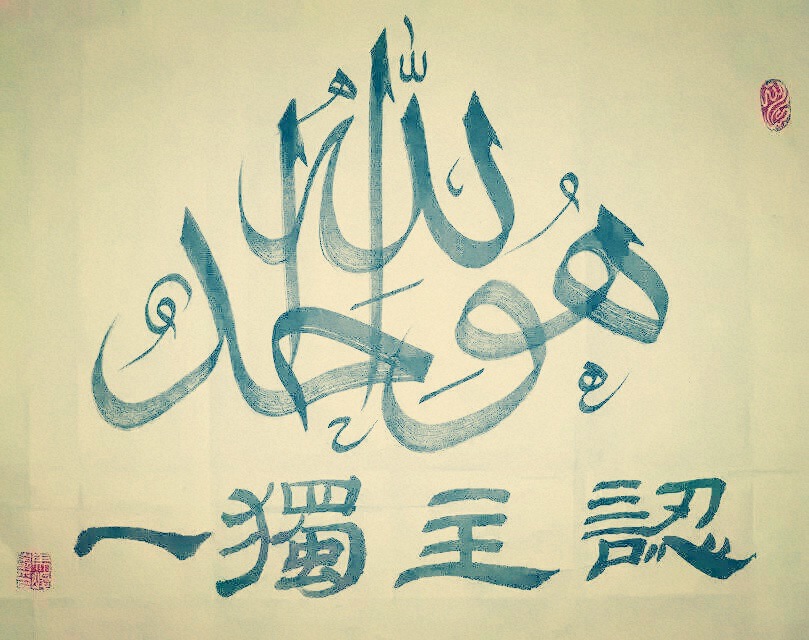 هو الله احد
認主獨一